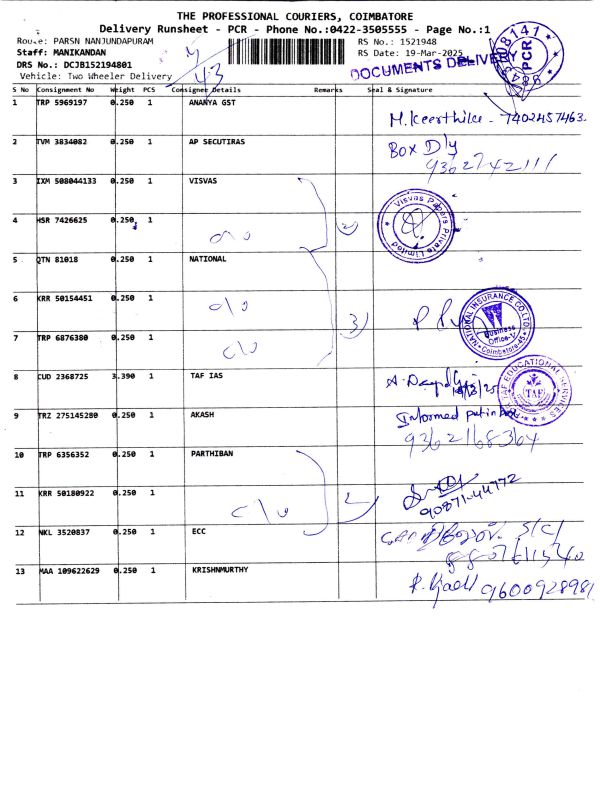 THE PROFESSIONAL COURIERS, COIMBATORE
Delivery Runsheet - PCR - Phone No.:0422-3505555 - Page No.:1
Route: PARSN NANJUNDAPURAM RS No.: 1521948
Staff: MANIKANDAN RS Date: 19-Mar-2025
DRS No.: DCJB152194801
Vehicle: Two Wheeler Delivery
43
DOCUMENTS DELIVERY
PCR
S No Consignment No Weight PCS Consignee Details Remarks Seal & Signature
1 TRP 5969197 0.250 1 ANANYA GST
M. Keerthika - 7402457463
2 TVM 3834082 0.250 1 AP SECUTIRAS Box Dly
9362742111
3 IXM 508044133 0.250 1 VISVAS
Visvas Papers Private Limited
4 HSR 7426625 0.250 1 2)
5 QTN 81018 0.250 1 NATIONAL
6 KRR 50154451 0.250 1
NATIONAL INSURANCE CO.LTD.
Business Office-V
Coimbatore-45
3)
7 TRP 6876380 0.250 1
8 CUD 2368725 3.390 1 TAF IAS
TAF EDUCATIONAL SERVICES
TAF
9 TRZ 275145280 0.250 1 AKASH Informed put in box
9362168364
10 TRP 6356352 0.250 1 PARTHIBAN
11 KRR 50180922 0.250 1
90871-44772
12 NKL 3520837 0.250 1 ECC
13 MAA 109622629 0.250 1 KRISHNMURTHY
9600928981